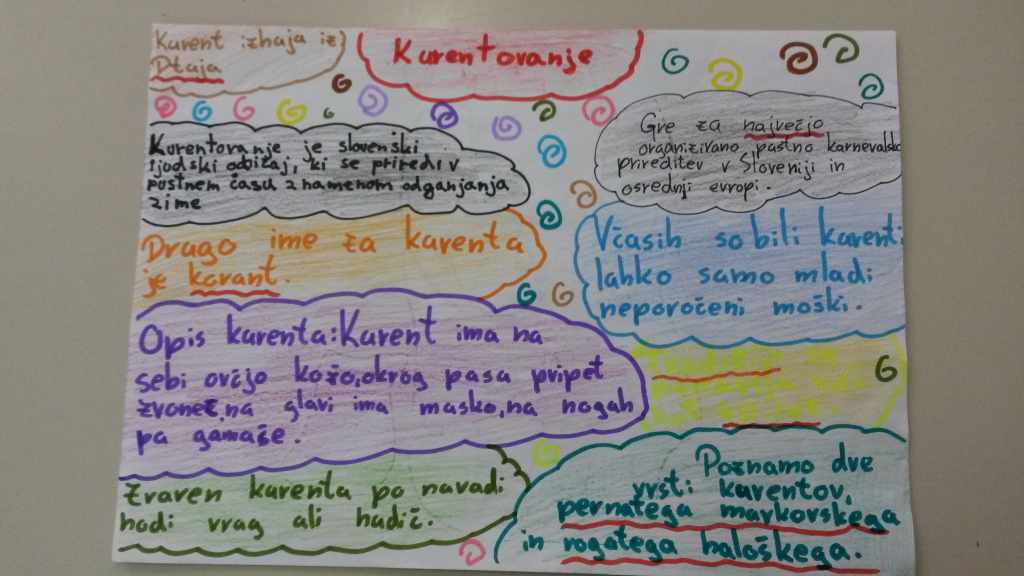 Kurent izhaja iz
Ptuja
Kurentovanje
Kurentovanje je slovenski
ljudski običaj, ki se priredi v
pustnem času z namenom odganjanja
zime
Gre za največjo
organizirano pustno karnevalsko
prireditev v Sloveniji in
osrednji evropi.
Drugo ime za kurenta
je korant.
Včasih so bili kurenti
lahko samo mladi
neporočeni moški.
Opis kurenta: Kurent ima na
sebi ovčjo kožo, okrog pasa pripet
zvonec, na glavi ima masko, na nogah
pa gamaše.
Zraven kurenta po navadi
hodi vrag ali hudič.
Poznamo dve
vrsti kurentov,
pernatega markovskega
in rogatega haloškega.